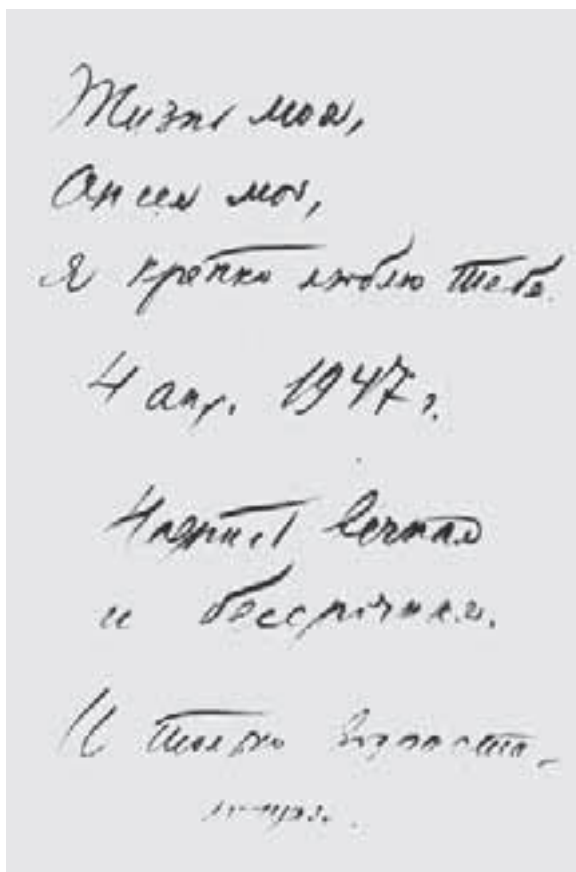 Жизнь моя,
Ангел мой,
я крепко люблю тебя.
4 апр. 1947 г.
Надпись вечная
и бессрочная.
И только возраста-
ющая.